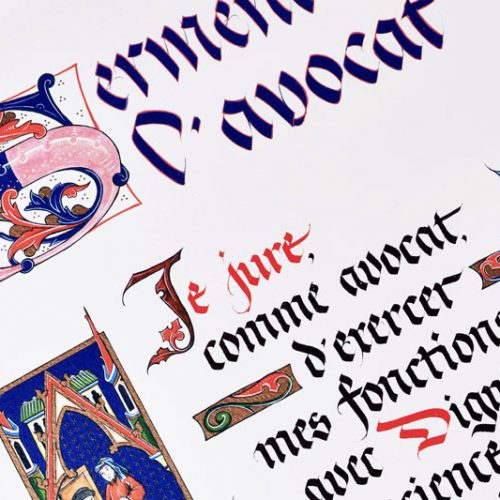 Serment
D'avocat
Je jure,
comme avocat,
d'exercer
mes fonctions
avec Dign